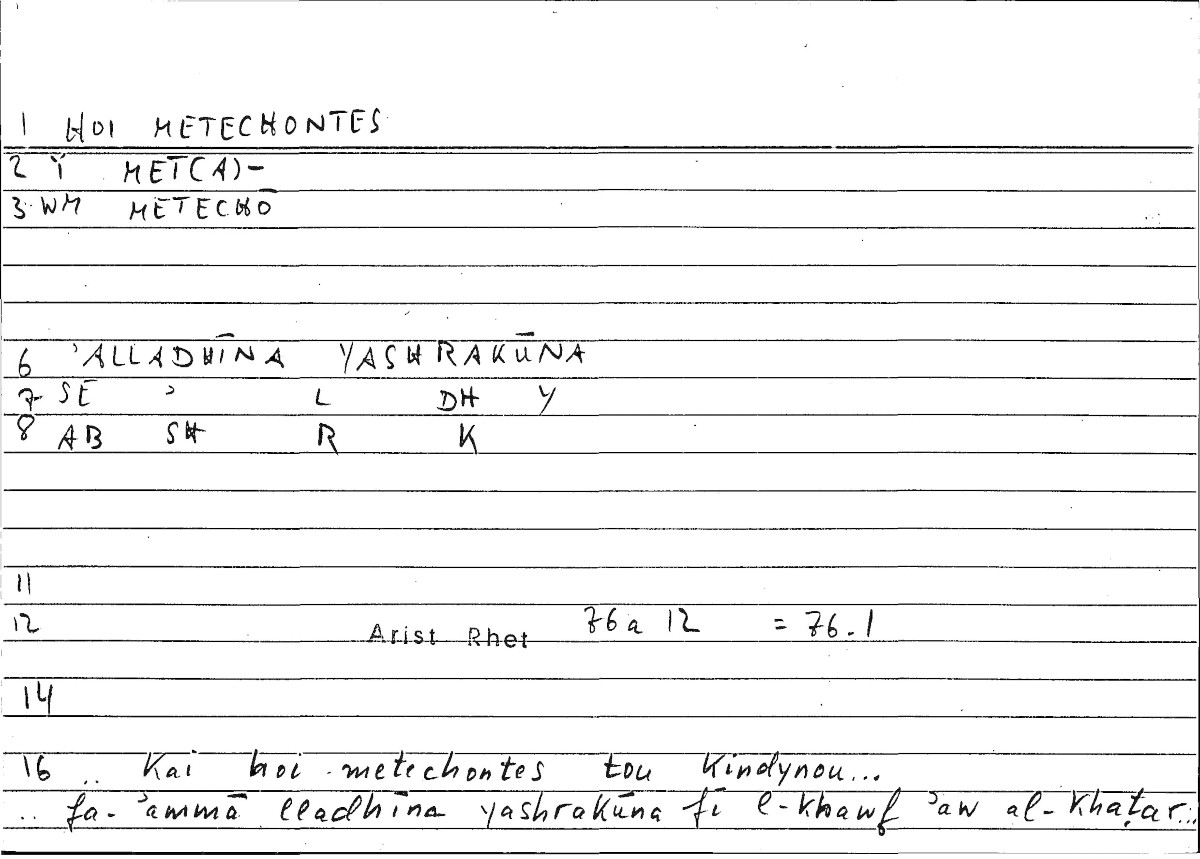 1 HOI METECHONTES
2 Ï MET(A)-
3 WM METECHŌ
6 ʾALLADHĪNA YASHRAKŪNA
7 SE ʾ L DH Y
8 AB SH R K
11
12 Arist Rhet 76a 12 = 76.1
14
16 .. Kai hoi metechontes tou Kindynou...
.. fa-ʾammā lladhīna yashrakūna fī l-khawf ʾaw al-Khaṭar...